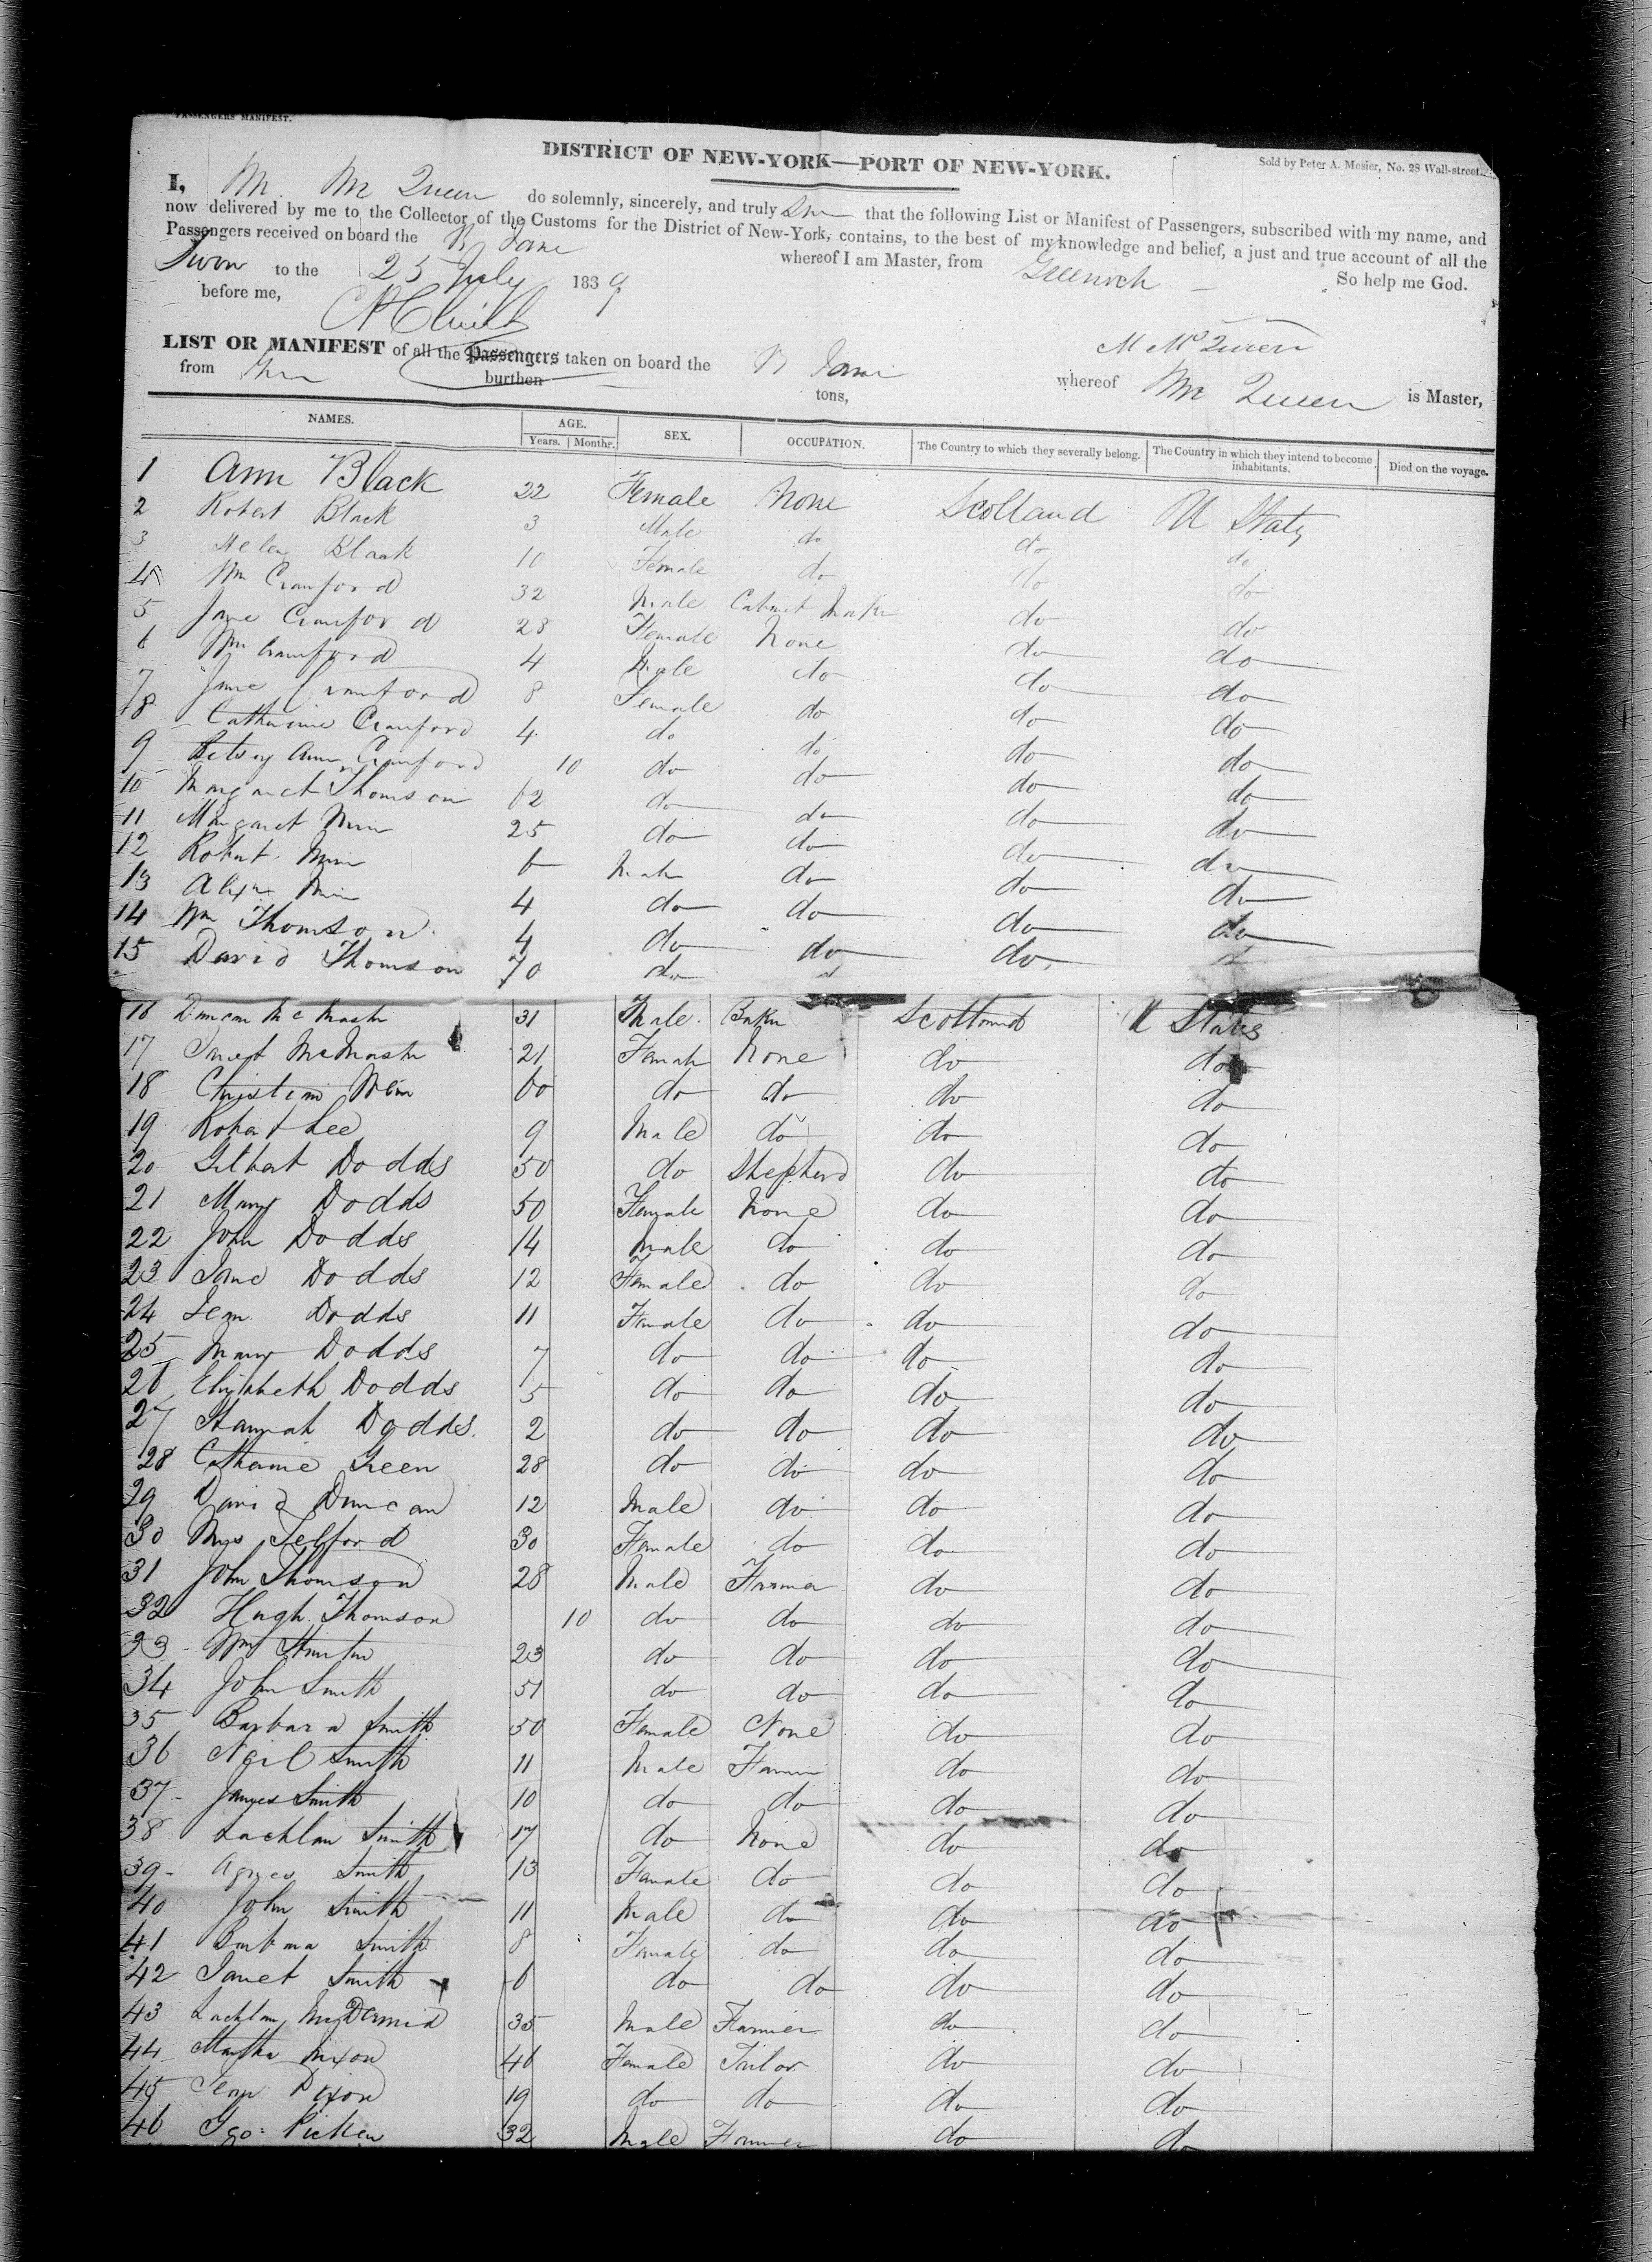 PASSENGERS MANIFEST.
DISTRICT OF NEW-YORK—PORT OF NEW-YORK.
Sold by Peter A. Mesier, No. 28 Wall-street.
I, M. Mc Queen do solemnly, sincerely, and truly that the following List or Manifest of Passengers, subscribed with my name, and
now delivered by me to the Collector of the Customs for the District of New-York, contains, to the best of my knowledge and belief, a just and true account of all the
Passengers received on board the B Jane whereof I am Master, from Greenock
Sworn to the 25 July 1839 So help me God.
before me,
M Mc Queen
LIST OR MANIFEST of all the Passengers taken on board the B Jane whereof Mc Queen is Master,
from burthen tons,
NAMES. AGE. SEX. OCCUPATION. The Country to which they severally belong. The Country in which they intend to become inhabitants. Died on the voyage.
Years. Months.
1 Ann Black 22 Female None Scotland U States
2 Robert Black 3 Male do do do
3 Helen Black 10 Female do do do
4 Wm Crawford 32 Male Cabinet Maker do do
5 Jane Crawford 28 Female None do do
6 Wm Crawford 4 Male do do do
7 Jane Crawford 8 Female do do do
8 Catherine Crawford 4 do do do do
9 Betsey Ann Crawford 10 do do do do
10 Margaret Thomson 62 do do do do
11 Margaret 25 do do do do
12 Robert 6 Male do do do
13 Alexr 4 do do do do
14 Wm Thomson 4 do do do do
15 David Thomson 70 do do
16 Duncan McMaster 31 Male Baker Scotland U States
17 Janet McMaster 21 Female None do do
18 Christian 60 do do do do
19 Robert Lee 9 Male do do do
20 Gilbert Dodds 50 do Shepherd do do
21 Mary Dodds 50 Female None do do
22 John Dodds 14 Male do do do
23 Jane Dodds 12 Female do do do
24 Dodds 11 Female do do do
25 Mary Dodds 7 do do do do
26 Elizabeth Dodds 5 do do do do
27 Hannah Dodds 2 do do do do
28 Catherine Green 28 do do do do
29 David Duncan 12 Male do do do
30 Mrs Telford 30 Female do do do
31 John Thomson 28 Male Farmer do do
32 Hugh Thomson 10 do do do do
33 Wm Hunter 23 do do do do
34 John Smith 51 do do do do
35 Barbara Smith 50 Female None do do
36 Neil Smith 11 Male Farmer do do
37 James Smith 10 do do do do
38 Lachlan Smith 17 do None do do
39 Agnes Smith 13 Female do do do
40 John Smith 11 Male do do do
41 Barbara Smith 8 Female do do do
42 Janet Smith 6 do do do do
43 Lachlan McDermid 35 Male Farmer do do
44 Martha Dixon 46 Female Tailor do do
45 Jean Dixon 19 do do do do
46 Geo: Picken 32 Male Farmer do do